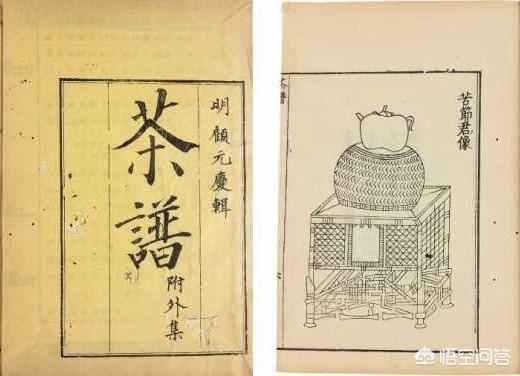 明顧元慶輯
茶譜
附外集
苦節君像
悟空问答